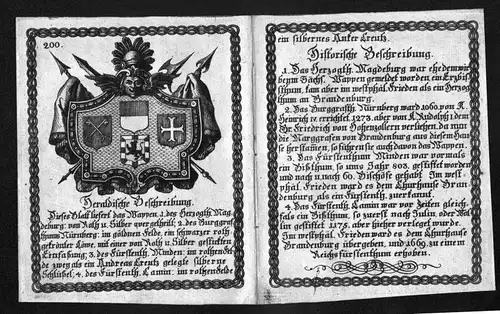 200.
Heraldische Beschreibung.
Dieses Blatt liefert das Wappen 1. des Herzogth. Mag-
deburg: von Roth u. Silber quer getheilt; 2. des Burggraf-
thums Nürnberg: im goldnen Felde, ein schwarzer roth
gekrönter Löwe, mit einer von Roth u. Silber gestückten
Einfassung; 3. des Fürstenth. Minden: im rothen Fel-
de zwey als ein Andreas Creutz gelegte silberne
Schlüssel; 4. des Fürstenth. Camin: im rothen Felde
ein silbernes Anker Creutz.
Historische Beschreibung.
1. Das Herzogth. Magdeburg war ehedem wie
beym Sächs. Wappen gemeldet worden ein Erzbis-
thum, kam aber im westphäl. Frieden als ein Herzog
thum an Brandenburg.
2. Das Burggrafth. Nürnberg ward 1060 von K.
Heinrich IV. errichtet, 1273. aber von K. Rudolph I dem
Gr. Friedrich von Hohenzollern verliehen, da nun
die Marggrafen von Brandenburg aus diesem Hau-
se herstam̄en, so führen sie auch davon das Wappen.
3. Das Fürstenthum Minden war vormals
ein Bisthum, so ums Jahr 803. gestiftet worden
und nach u. nach 60. Bischöfe gehabt. Im west-
phäl. Frieden ward es dem Churhause Bran
denburg als ein Fürstenth. zuerkannt.
4. Das Fürstenth. Camin war vor Zeiten gleich-
fals ein Bisthum, so zuerst nach Julin oder Wol-
lin gestiftet 1175. aber hieher verlegt wurde.
Im westphäl. Frieden ward es dem Churhause
Brandenburg übergeben, und 1669. zu einem
Reichsfürstenthum erhoben.